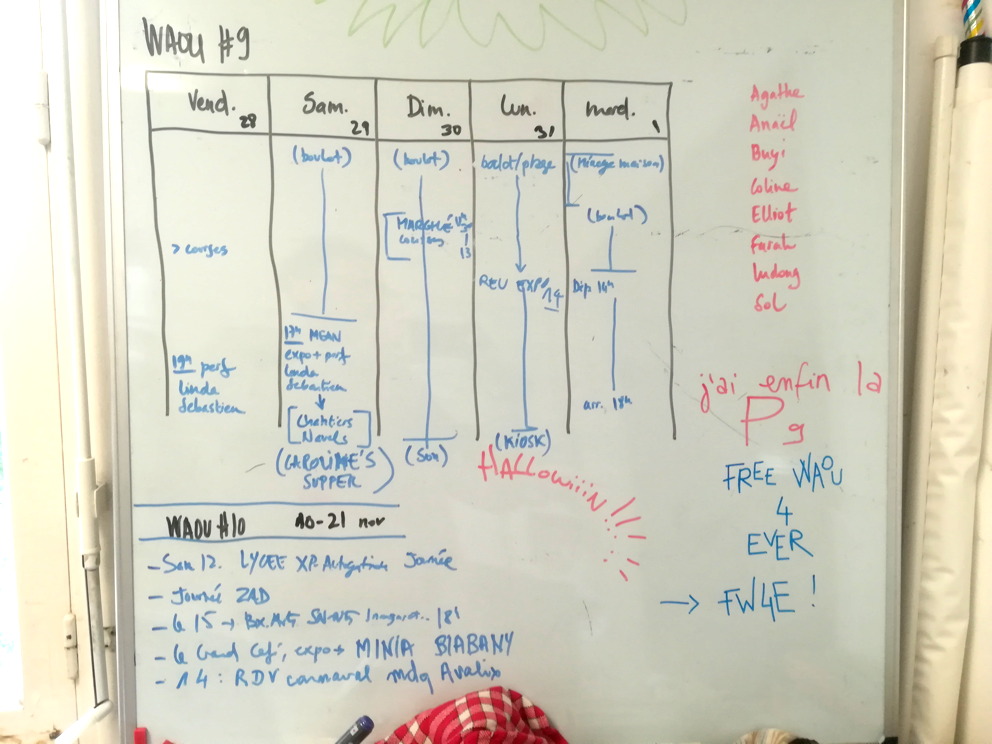 WAOU #9
Vend. 28
Sam. 29
Dim. 30
Lun. 31
mard. 1
(boulot)
(boulot)
boulot/plage
(Ménage maison)
(boulot)
> courses
13
REU EXPO 14
Dép. 14h
17h MEAN
expo + perf
Linda
Sebastien
19h perf
Linda
Sebastien
arr. 18h
[Chantiers
Navals]
(CAROLINE'S
SUPPER)
(Son)
(KIOSK)
HALLOWiiiN!!!
Agathe
Anaël
Buyi
Coline
Elliot
Farah
Ludong
Sol
j'ai enfin la
P9
FREE WAOU
4
EVER
→ FW4E !
WAOU #10 10-21 nov
- Sam 12. LYCEE XP. Journée
- Journée ZAD
- Le 15 →
- Le Grand Café, expo + MINIA BIABANY
- 14 : RDV carnaval mdq Avalix